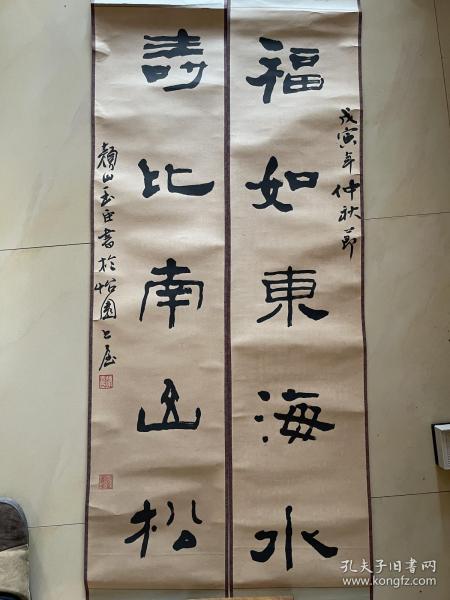 福如東海水
戊寅年仲秋節
壽比南山松
書於怡園
孔夫子旧书网
www.kongfz.com